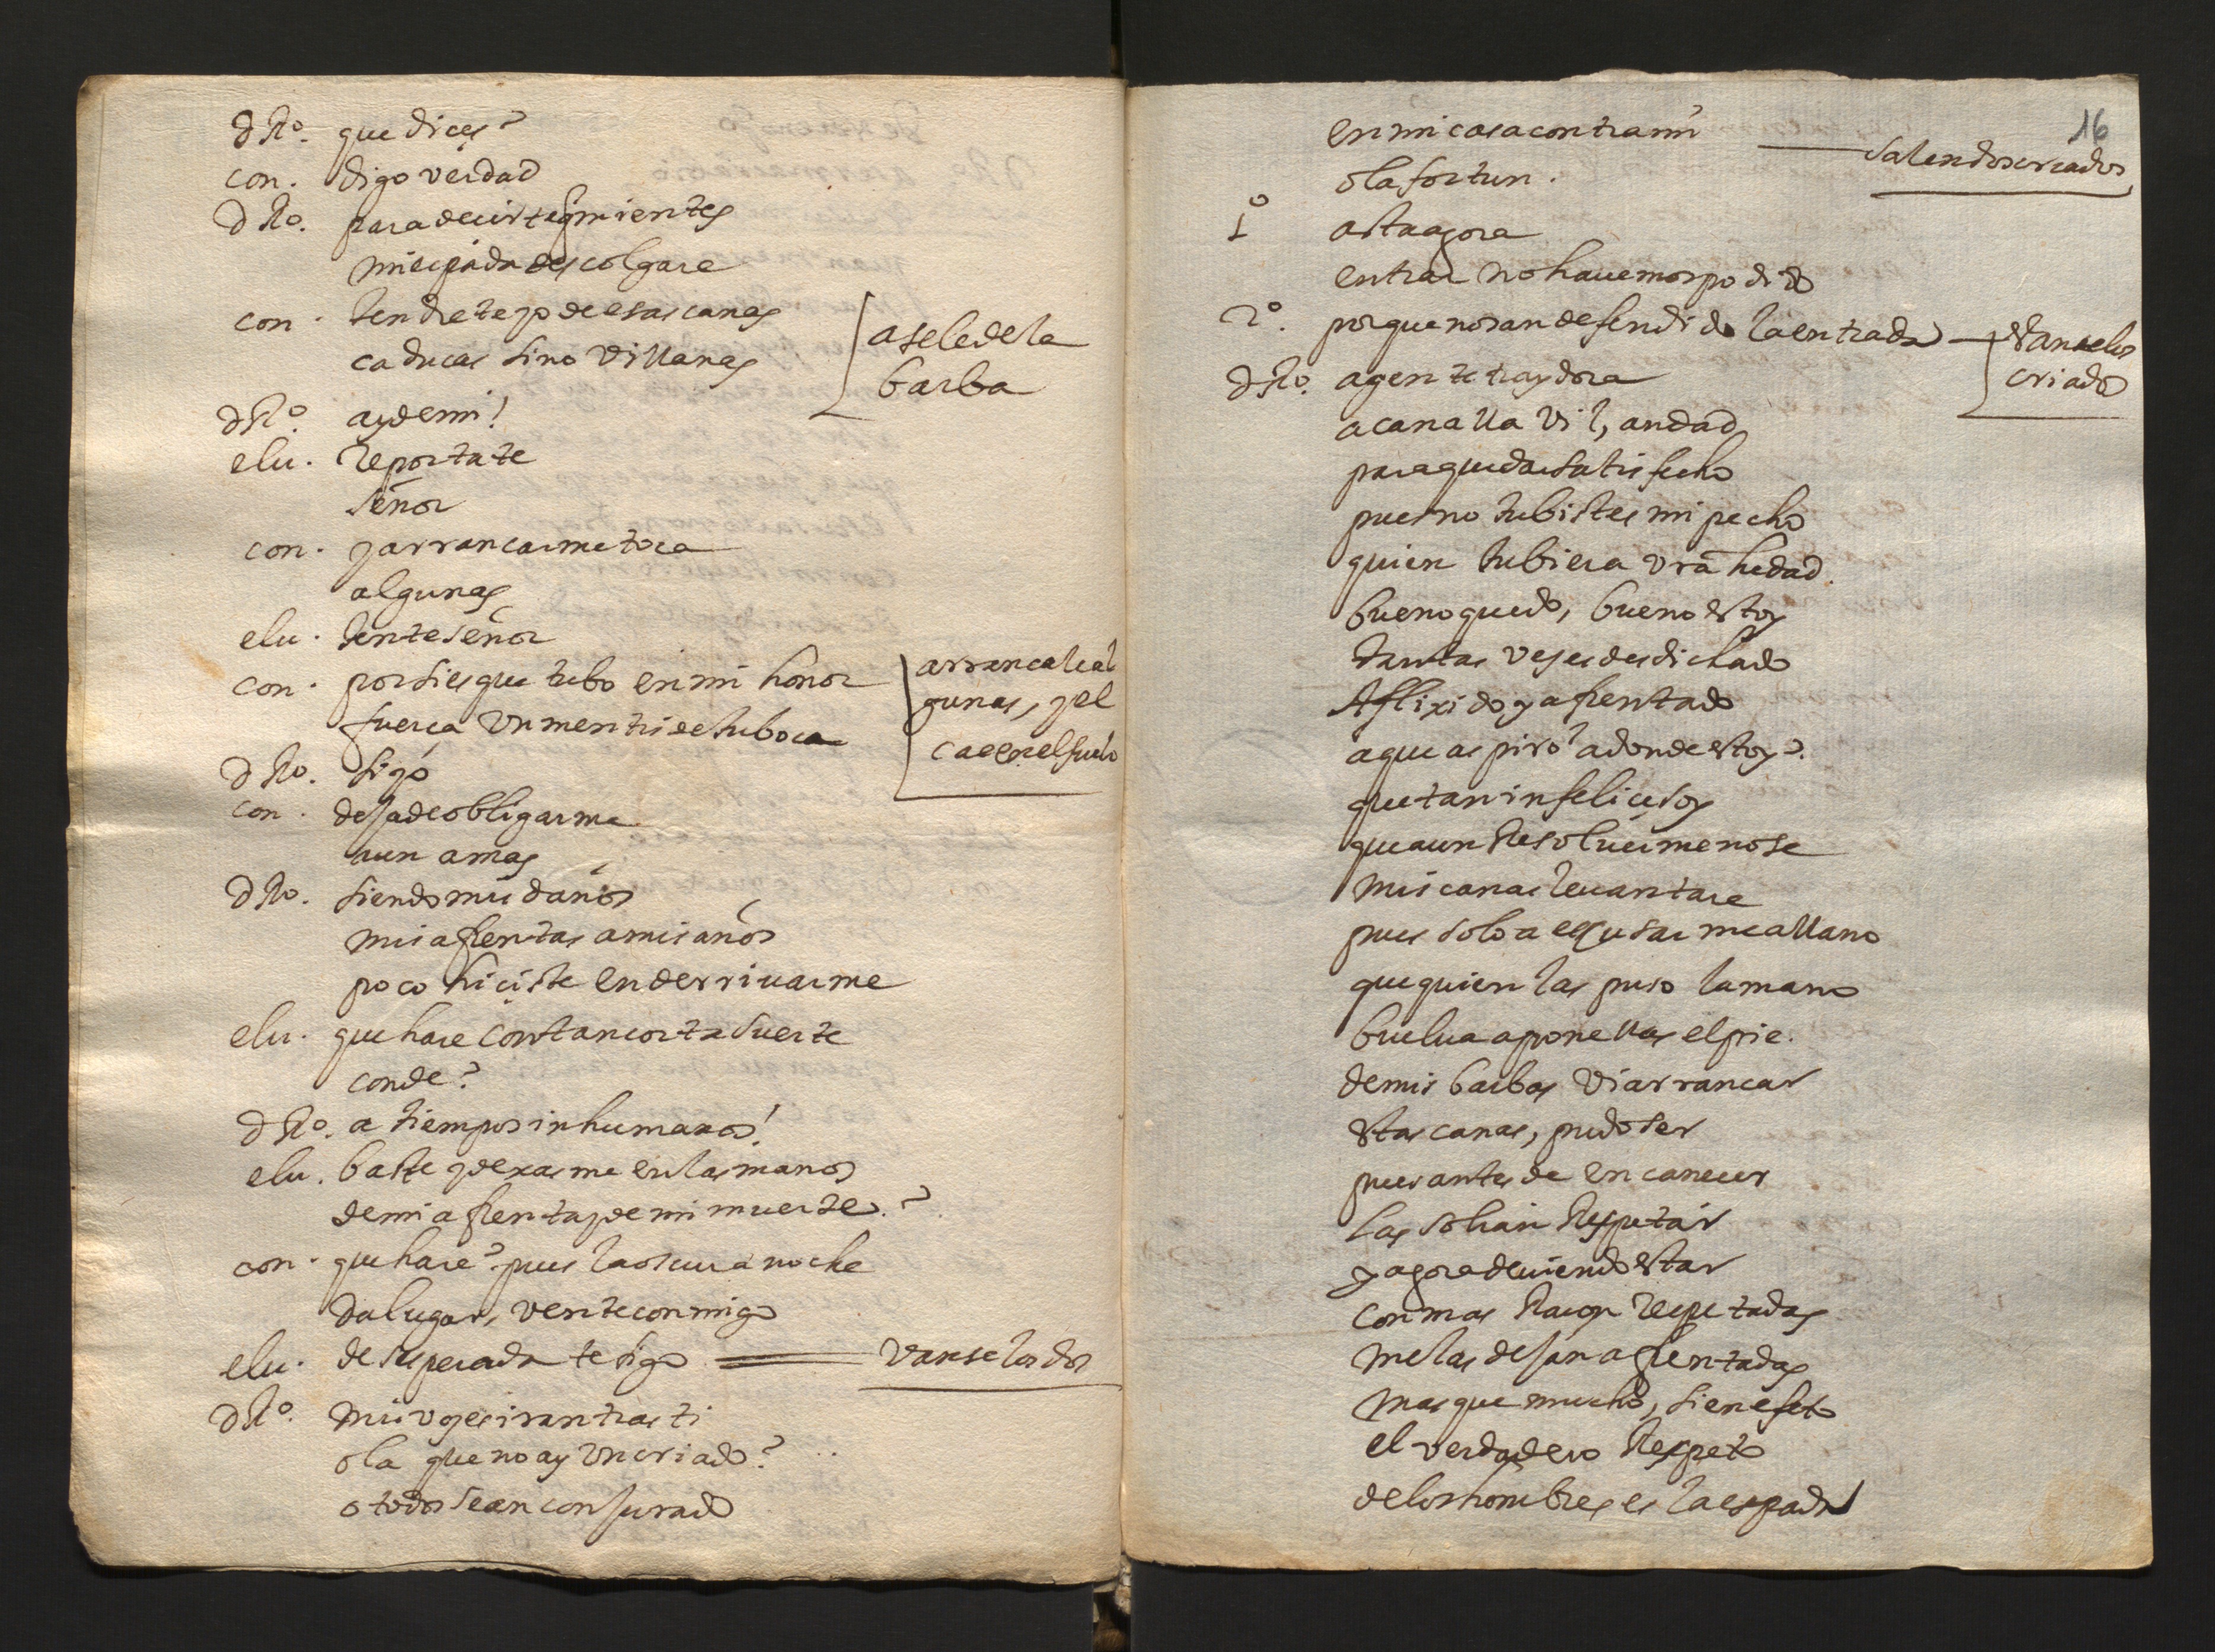 d Ro. que dices?
con. digo verdad
d Ro. para decirte q mientes
mi espada descolgare
con. tendrete yo de esas canas
caducas sino villanas
asele de la
barba
d Ro. ay de mi!
elu. reportate
señor
con. y arrancarme toca
algunas
elu. tente señor
con. por si es que tubo en mi honor
fuerça un mentis de tu boca
arrancale al
gunas, y el
cae en el suelo
d Ro. sigo
con. deja de obligarme
aun a mas
d Ro. siendo mis daños
mis afrentas a mis años
poco hiciste en derrivarme
elu. que hare con tan corta suerte
conde?
d Ro. a tiempos inhumanos!
elu. baste q dexarme en las manos
de mi afrenta y de mi muerte?
con. que hare? pues la oscura noche
da lugar, vente conmigo
elu. desesperada te sigo
vanse los dos
d Ro. mis voces iran tras ti
ola que no ay un criado?
o todos se an conjurado
16
en mi casa contra mi
salen dos criados
ola fortun.
1º asta agora
entrar no hauemos podido
2º. porque nos an defendido la entrada
vanse los
criados
d Ro. a gente traydora
a canalla vil, andad
para quedar satisfecho
pues no tubistes mi pecho
quien tubiera vrã hedad.
bueno quedo, bueno estoy
tantas veses desdichado
aflixido y afrentado
a que aspiro? adonde estoy?
que tan infelice soy
que aun resoluerme no se
mis canas leuantare
pues solo a escusar me allano
que quien las puso la mano
buelua a ponellas el pie.
de mis barbas vi arrancar
estas canas, pudo ser
pues antes de encanecer
las solian respetar
y agora deuiendo estar
con mas raçon respetadas
me las dejan afrentadas
mas que mucho, si en efeto
el verdadero respeto
de los hombres es la espada